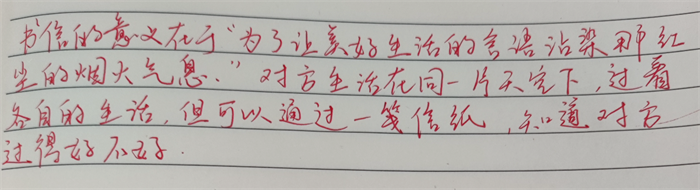 书信的意义在于“为了让美好生活的言语沾染那红
尘的烟火气息.”对方生活在同一片天空下,过着
各自的生活,但可以通过一笺信纸,知道对方
过得好不好.